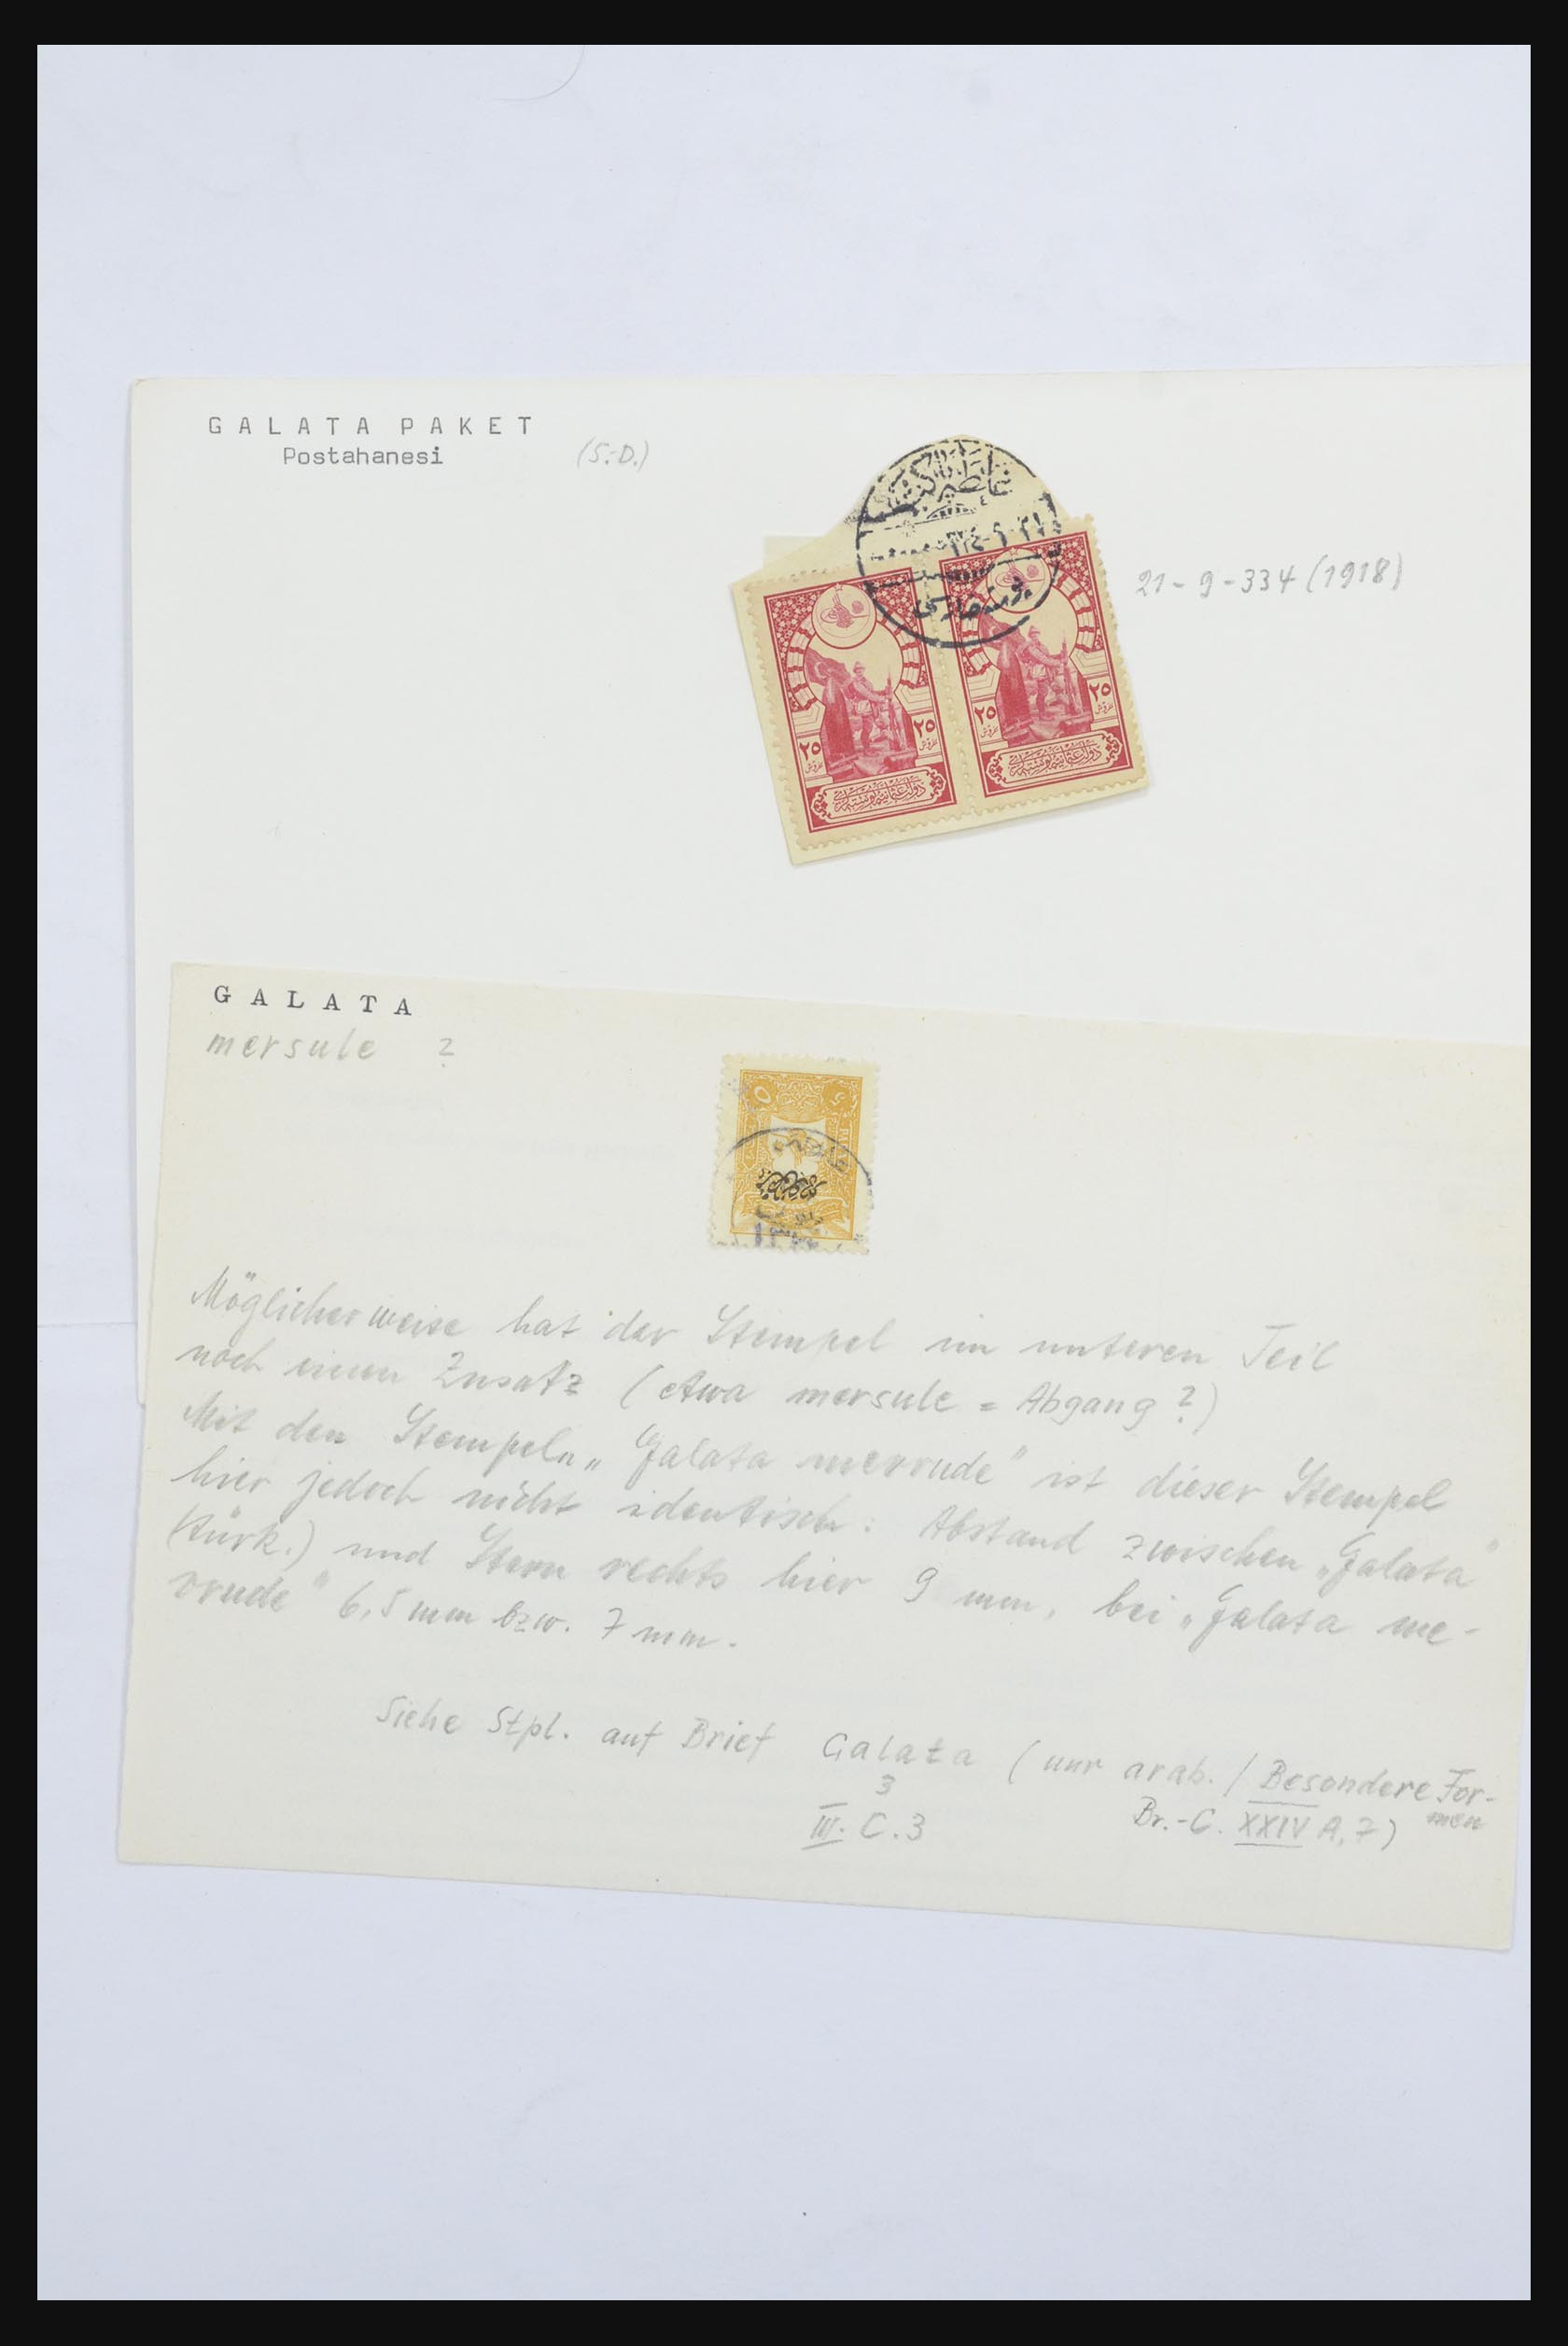 GALATA PAKET
Postahanesi
(S.-D.)
21-9-334 (1918)
٢٥
٢٥
٢٥
٢٥
GALATA
mersule ?
Möglicherweise hat der Stempel im unteren Teil
noch einen Zusatz (etwa mersule = Abgang ?)
Mit den Stempeln „Galata merrude" ist dieser Stempel
hier jedoch nicht identisch: Abstand zwischen „Galata"
(türk.) und Stern rechts hier 9 mm, bei „Galata me-
rrude" 6,5 mm bzw. 7 mm.
Siehe Stpl. auf Brief Galata (nur arab. / Besondere For-
men
3
III. C. 3
Br.-C. XXIV A, 7)